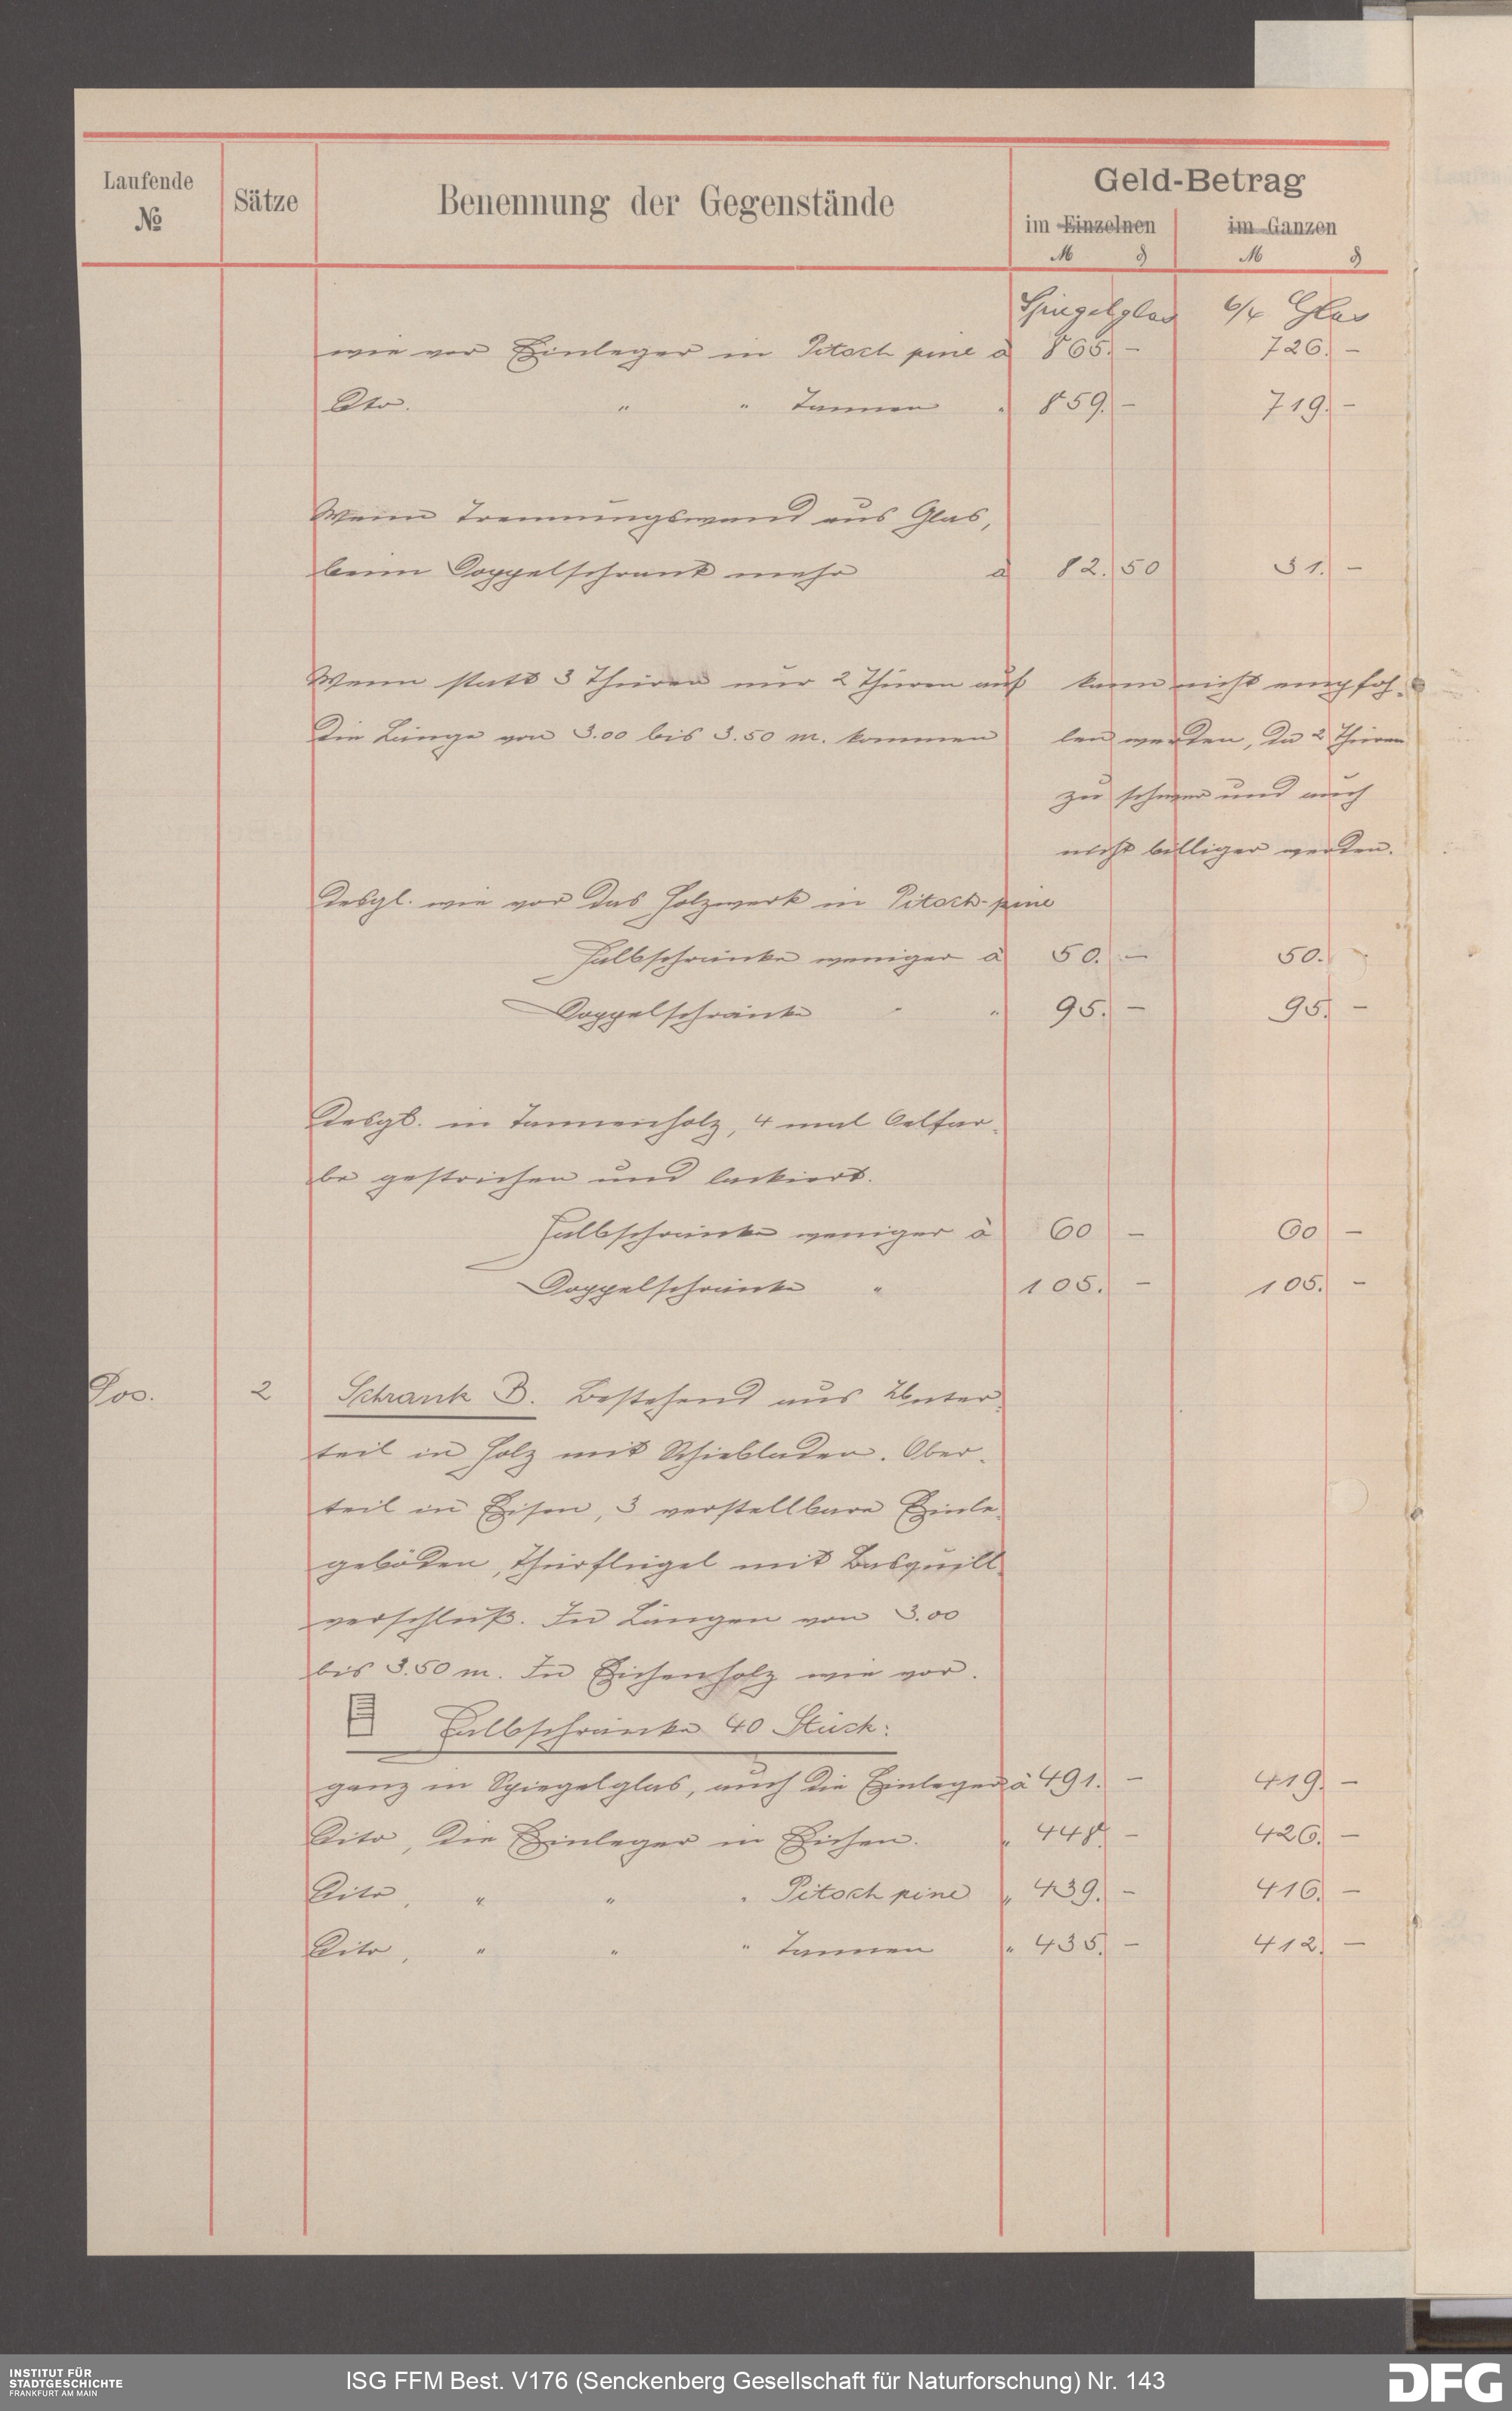 Laufende
№
Sätze
Benennung der Gegenstände
Geld-Betrag
im Einzelnen
im Ganzen
M ₰ M ₰
Spiegelglas 6/4 Glas
wie vor Einleger in Pitsch pine à 865.- 726.-
Dto. " " Tannen " 859.- 719.-
Wenn Trennungswand aus Glas,
beim Doppelschrank mehr à 82.50 51.-
Wenn statt 3 Thüren nur 2 Thüren auf kann nicht empfoh-
die Länge von 3.00 bis 3.50 m. kommen len werden, da 2 Thüren
zu schwer und auch
nicht billiger werden.
Desgl. wie vor das Holzwerk in Pitsch-pine
Halbschränke weniger à 50.- 50.-
Doppelschränke " " 95.- 95.-
Desgl. in Tannenholz, 4 mal Oelfar-
be gestrichen und lackiert.
Halbschränke weniger à 60 - 60 -
Doppelschränke " 105.- 105.-
Pos. 2 Schrank B. Bestehend aus Unter-
teil in Holz mit Schiebladen. Ober-
teil in Eisen, 3 verstellbare Einle-
geböden, Thürflügel mit Basquill-
verschluß. In Längen von 3.00
bis 3.50 m. In Eichenholz wie vor.
Halbschränke 40 Stück:
ganz in Spiegelglas, auch die Einleger à 491.- 419.-
Dito, die Einleger in Eichen. " 448.- 426.-
Dito, " " " Pitsch pine " 439.- 416.-
Dito, " " " Tannen " 435.- 412.-
INSTITUT FÜR
STADTGESCHICHTE
FRANKFURT AM MAIN
ISG FFM Best. V176 (Senckenberg Gesellschaft für Naturforschung) Nr. 143
DFG